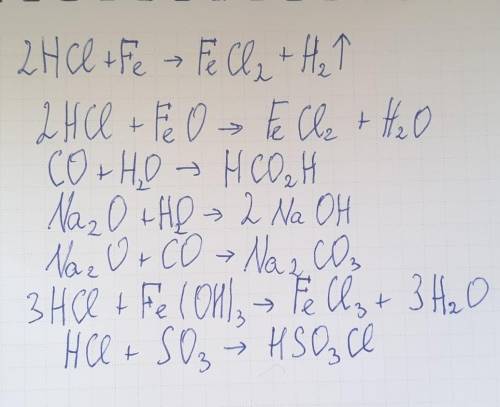 2HCl + Fe → FeCl₂ + H₂↑
2HCl + FeO → FeCl₂ + H₂O
CO + H₂O → HCO₂H
Na₂O + H₂O → 2NaOH
Na₂O + CO → Na₂CO₃
3HCl + Fe(OH)₃ → FeCl₃ + 3H₂O
HCl + SO₃ → HSO₃Cl